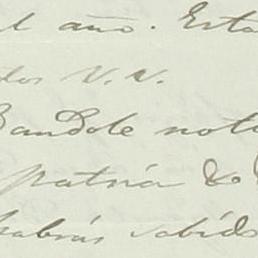 l año. Esta
dos V. V.
Bandole noto
patria &
habrás sabido